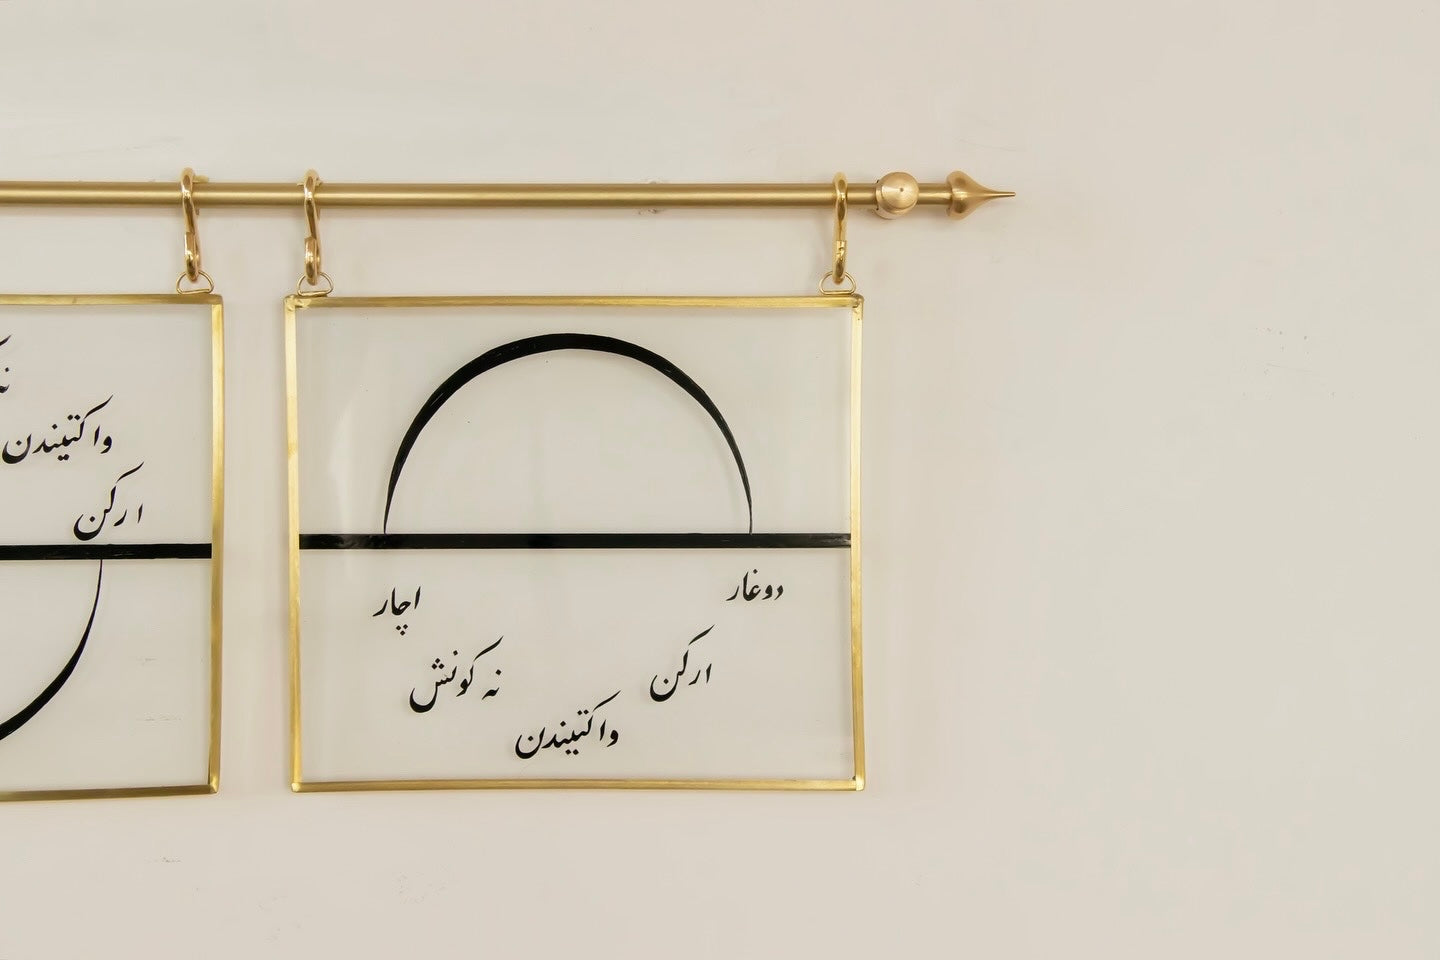 واکتیندن
ارکن
دوغار
ارکن
واکتیندن
نه کونش
اچار